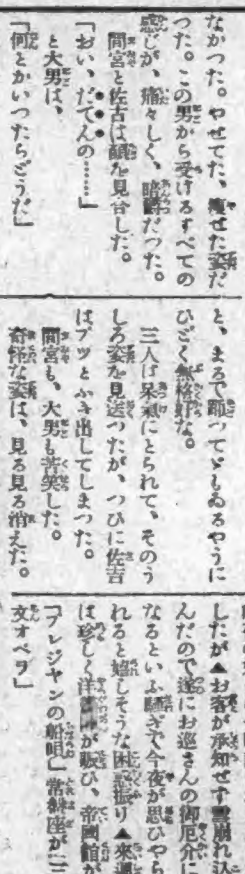 なかつた。やせてた、瘦せた姿だ
つた。この男から受けるすべての
感じが、痛々しく、暗鬱だつた。
間宮と佐古は顔を見合した。
「おい、だてんの……」
と大男は、
「何とかいつたらどうだ」
と、まるで踊つてゞもゐるやうに
ひどく無格好な。
三人は呆氣にとられて、そのう
しろ姿を見送つたが、つひに佐古
はプツとふき出してしまつた。
間宮も、大男も苦笑した。
奇怪な姿は、見る見る消えた。
したが▲お客が承知せず雪崩れ込
んだので遂にお巡さんの御厄介に
なるといふ騒ぎで今夜が思ひやら
れると嬉しそうな困り振り▲來週
は珍しく洋畫が賑ひ、帝國館が
「プレジヤンの船唄」常盤座が「三
文オペラ」